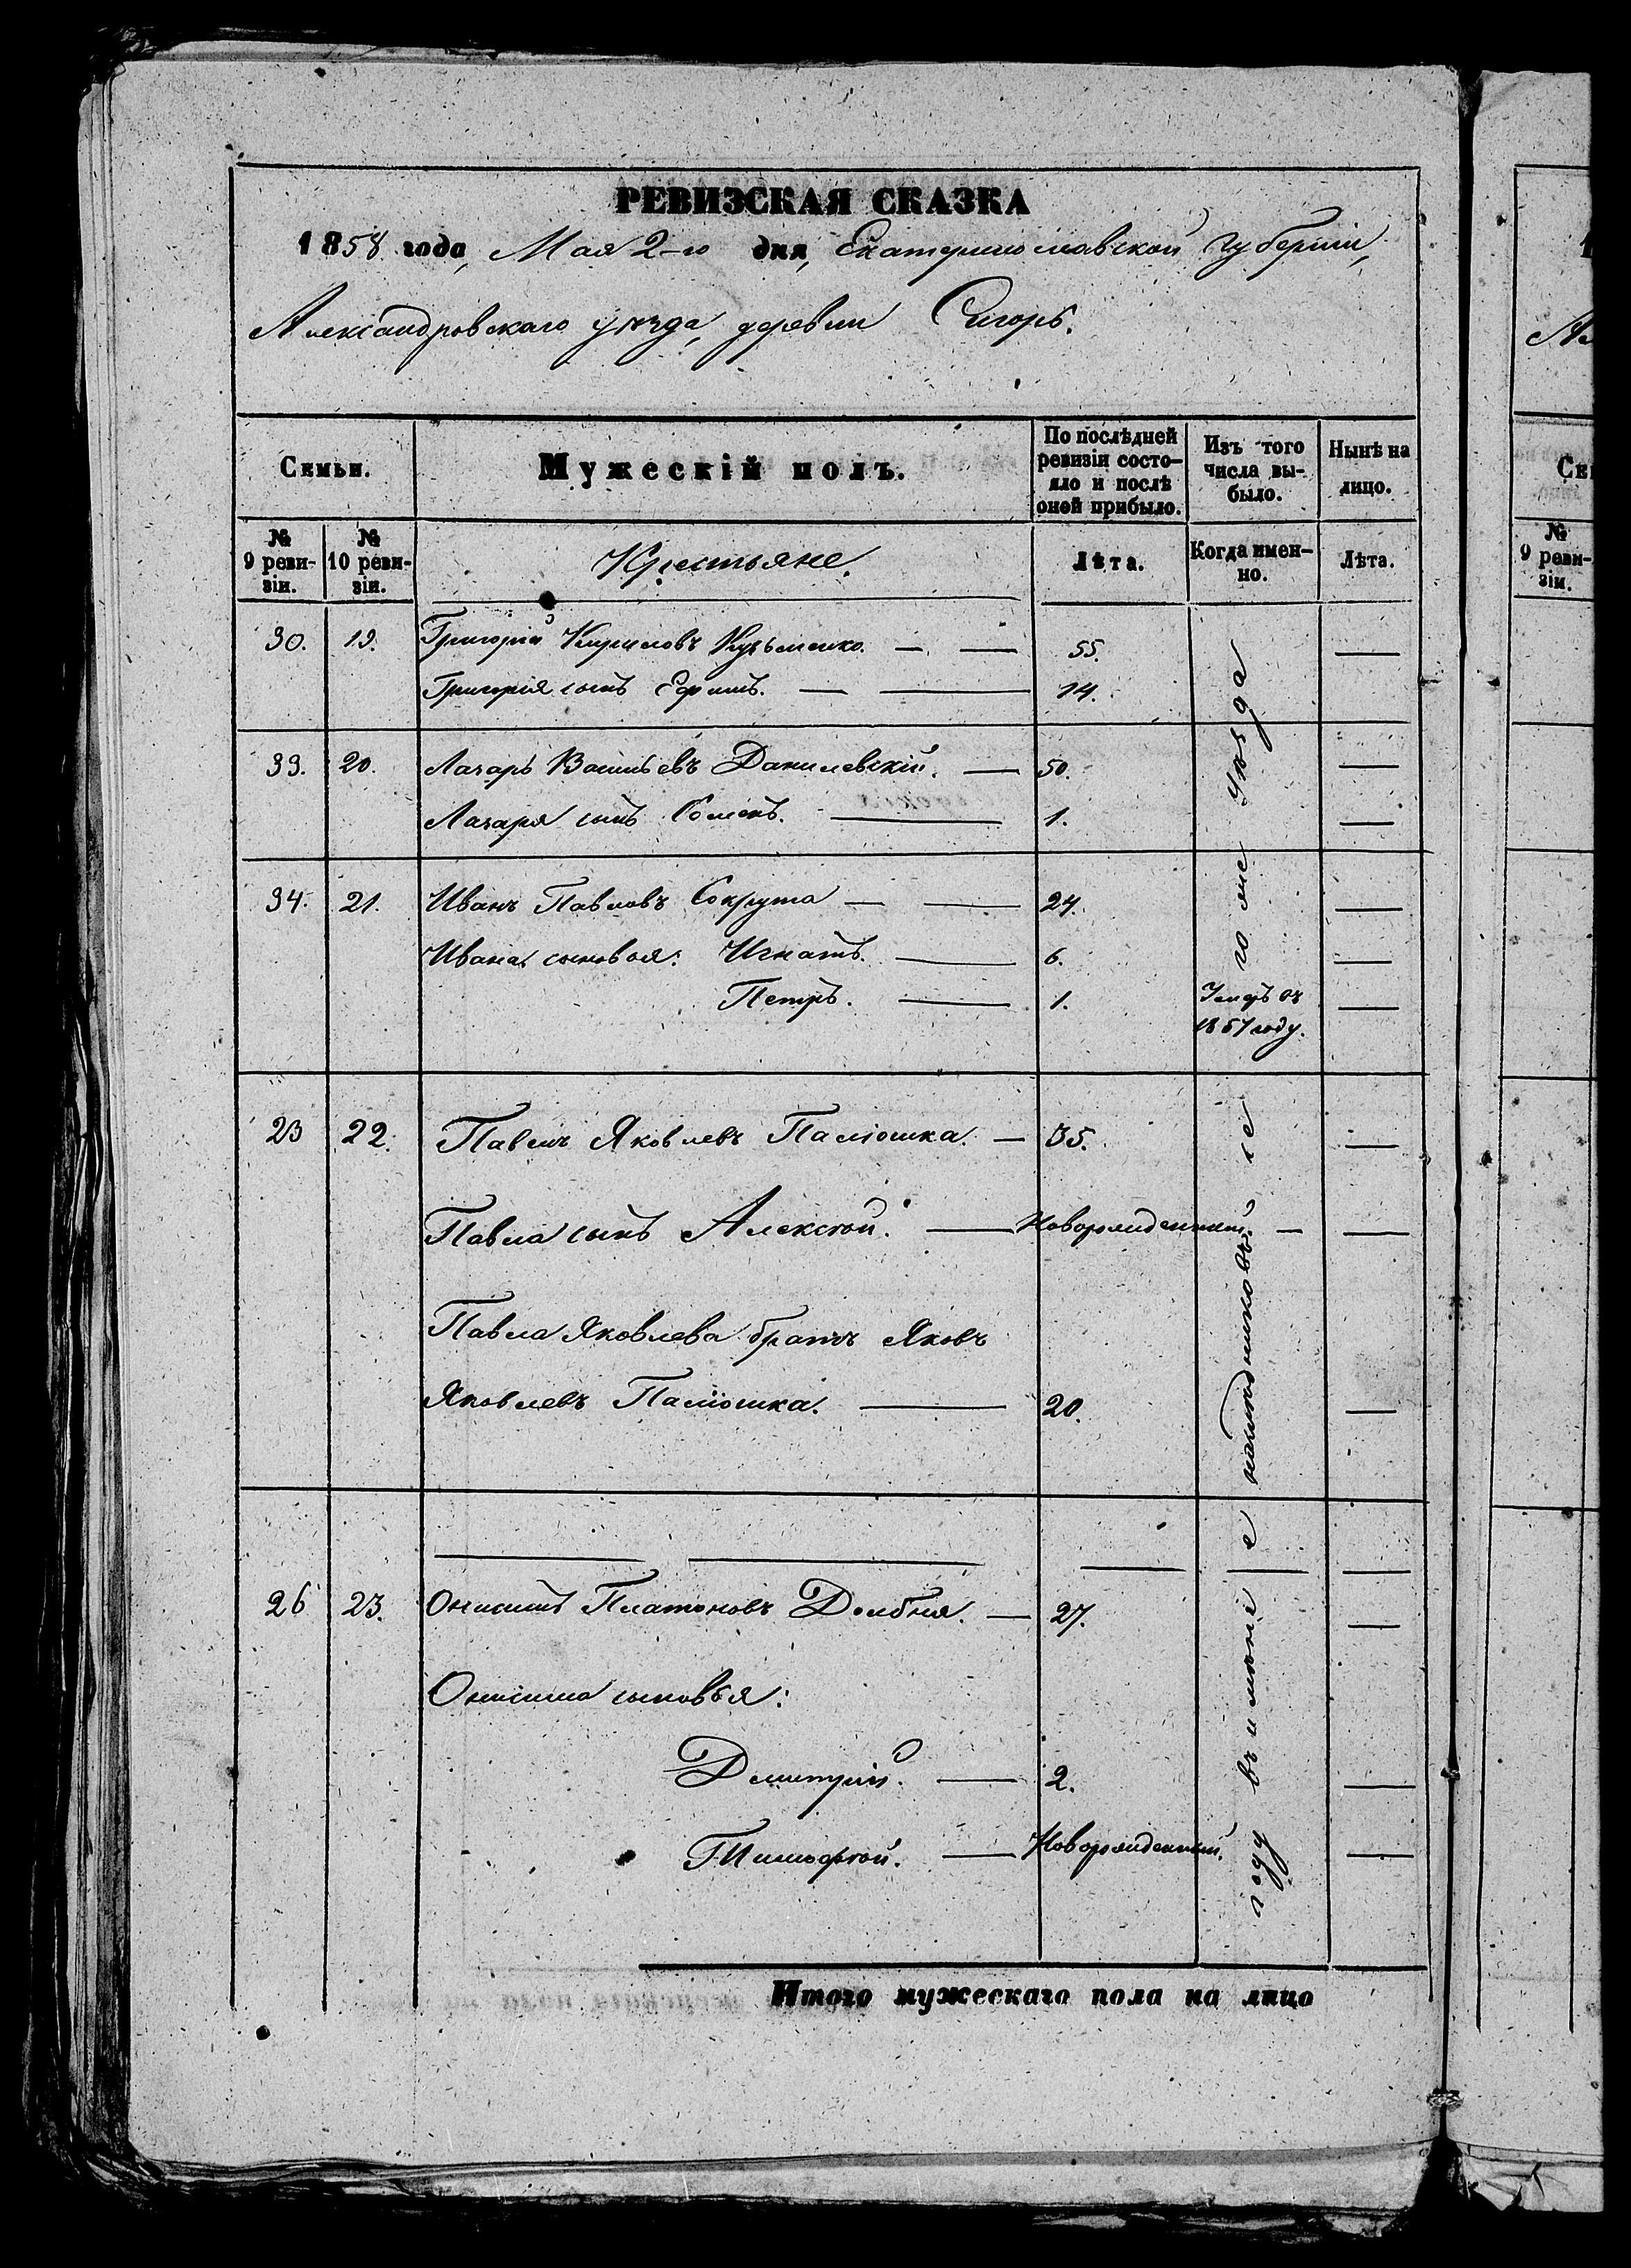 РЕВИЗСКАЯ СКАЗКА
1858 года, Мая 2-го дня, Екатеринославской губерніи,
Александровскаго уѣзда, деревни
Семьи. Мужескій полъ. По послѣдней ревизіи состо-яло и послѣ оной прибыло. Изъ того числа вы-было. Нынѣ на лицо.
№ 9 реви-зіи. № 10 реви-зіи. Крестьяне. Лѣта. Когда имен-но. Лѣта.
30. 19. Григорій Кириловъ Кузьменко. — — 55. —
Григорія сынъ Ефимъ. — — 14.
33. 20. Лазарь Васильевъ Данилевскій. — 50. —
Лазаря сынъ Семенъ. — 1. —
34. 21. Иванъ Павловъ Сокрута — — 24. —
Ивана сыновья: Игнатъ. — 6. —
Петръ. — 1. Умеръ въ 1857 году. —
23 22. Павелъ Яковлевъ Палюшка. — 35. —
Павла сынъ Алексѣй. — Новорожденный. — —
Павла Яковлева братъ Яковъ
Яковлевъ Палюшка. — 20. —
26 23. Онисимъ Платоновъ Долбня. — 27. —
Онисима сыновья:
Дмитрій. — 2. —
Тимофѣй. — Новорожденный. —
году въ имѣніе наслѣдниковъ го же уѣзда
Итого мужескаго пола на лицо
№
9 реви-
зіи.